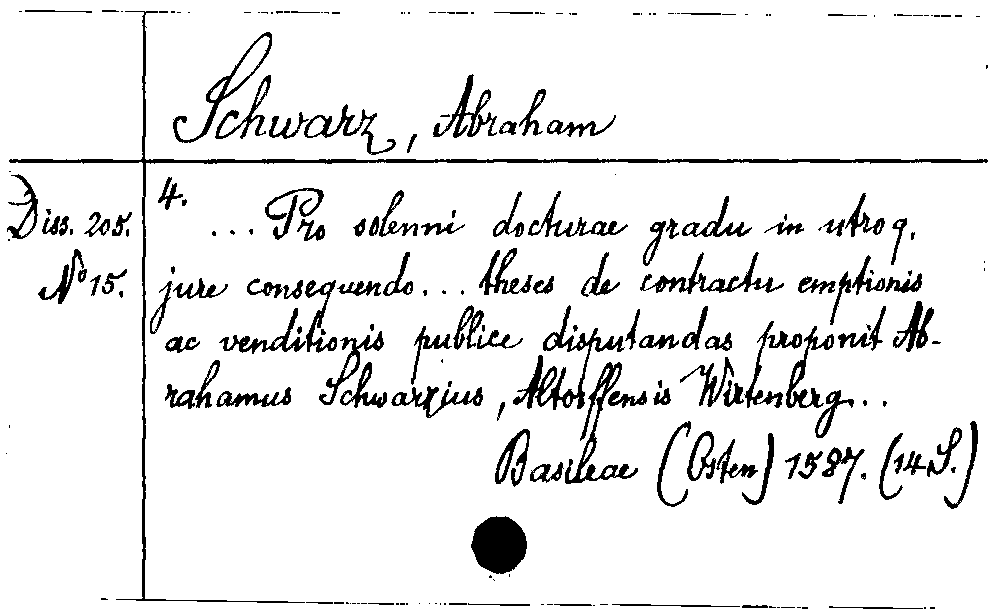 Schwarz, Abraham
Diss. 205.
No 15.
4.
... Pro solenni docturae gradu in utroq.
jure consequendo... theses de contractu emptionis
ac venditionis publice disputandas proponit Ab-
rahamus Schwarzius, Altorffensis Wirtenberg...
Basileae (Osten) 1587. (14 S.)